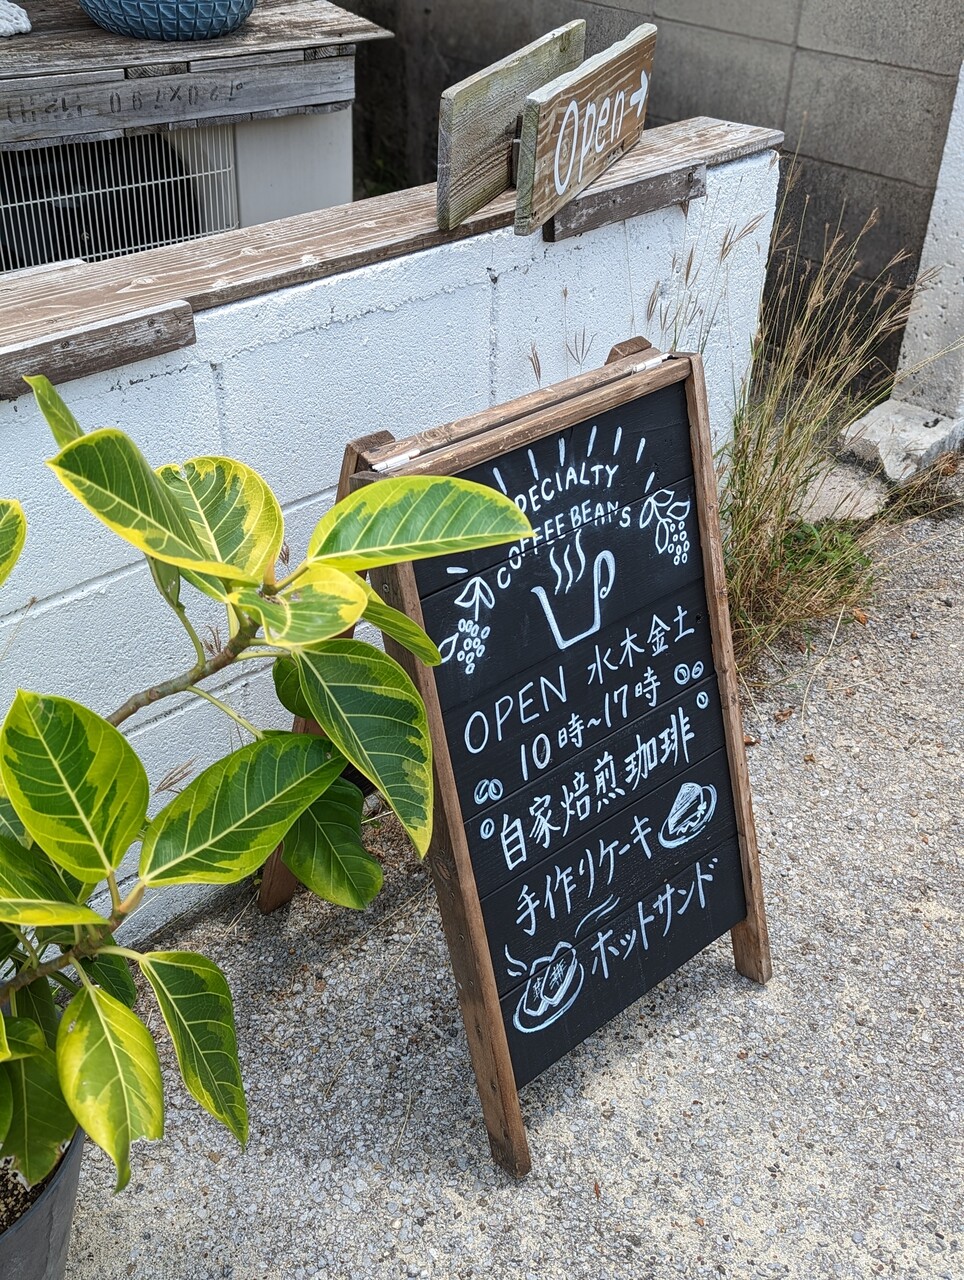 Open →
SPECIALTY
COFFEE BEANS
OPEN 水木金土
10時~17時
自家焙煎珈琲
手作りケーキ
ホットサンド